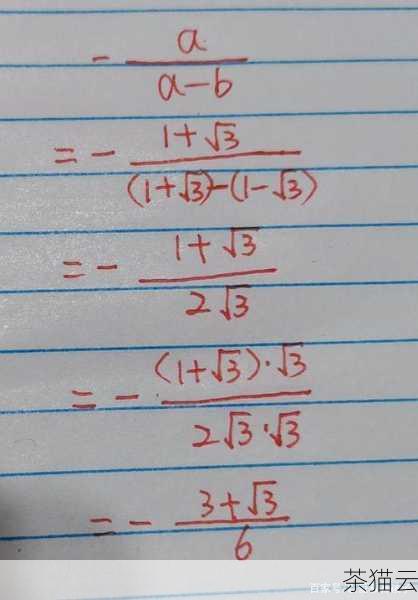 - a/(a-b)
= - (1+√3)/((1+√3)-(1-√3))
= - (1+√3)/(2√3)
= - ((1+√3)·√3)/(2√3·√3)
= - (3+√3)/6
茶猫云